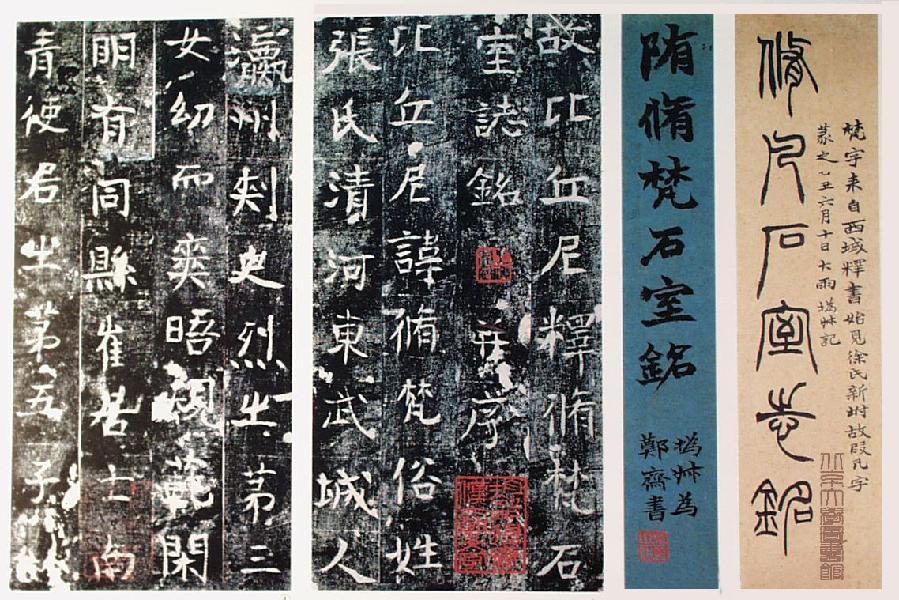 梵字来自西域釋書始見徐氏新坿故叚凡字
篆之乙丑六月十日大雨 撝叔記
脩凡石室志銘
隋脩梵石室銘
撝叔為
鄭齋書
故比丘尼釋脩梵石
室誌銘 并序
比丘尼諱脩梵俗姓
張氏清河東武城人
瀛州刺史烈之第三
女幼而爽晤規範閑
明有同縣崔居士南
青使君之第五子